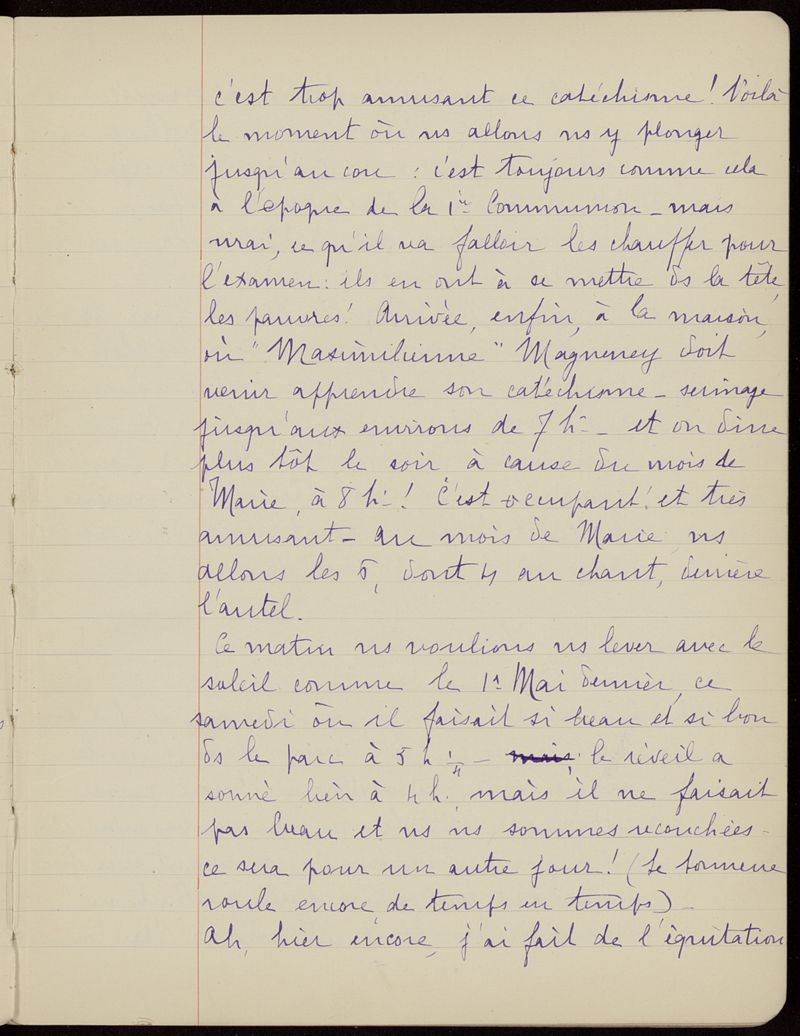 c'est trop amusant ce catéchisme! Voilà
le moment où ns allons ns y plonger
jusqu'au cou : c'est toujours comme cela
à l'époque de la 1re Communion - mais
vrai, ce qu'il va falloir les chauffer pour
l'examen : ils en ont à se mettre ds la tête,
les pauvres! Arrivée, enfin, à la maison,
où "Maximilienne" Magneney doit
venir apprendre son catéchisme - serinage
jusqu'aux environs de 7 h - et on dine
plus tôt le soir à cause du mois de
Marie, à 8 h! C'est occupant! et très
amusant - au mois de Marie ns
allons les 5, dont 4 au chant, derrière
l'autel.
Ce matin ns voulions ns lever avec le
soleil comme le 1er Mai dernier, ce
samedi où il faisait si beau et si bon
ds le parc à 5 h 1/4 - mais le réveil a
sonné bien à 4 h. mais il ne faisait
pas beau et ns ns sommes recouchées -
ce sera pour un autre jour! (Le tonnerre
roule encore de temps en temps) -
Ah, hier encore, j'ai fait de l'équitation